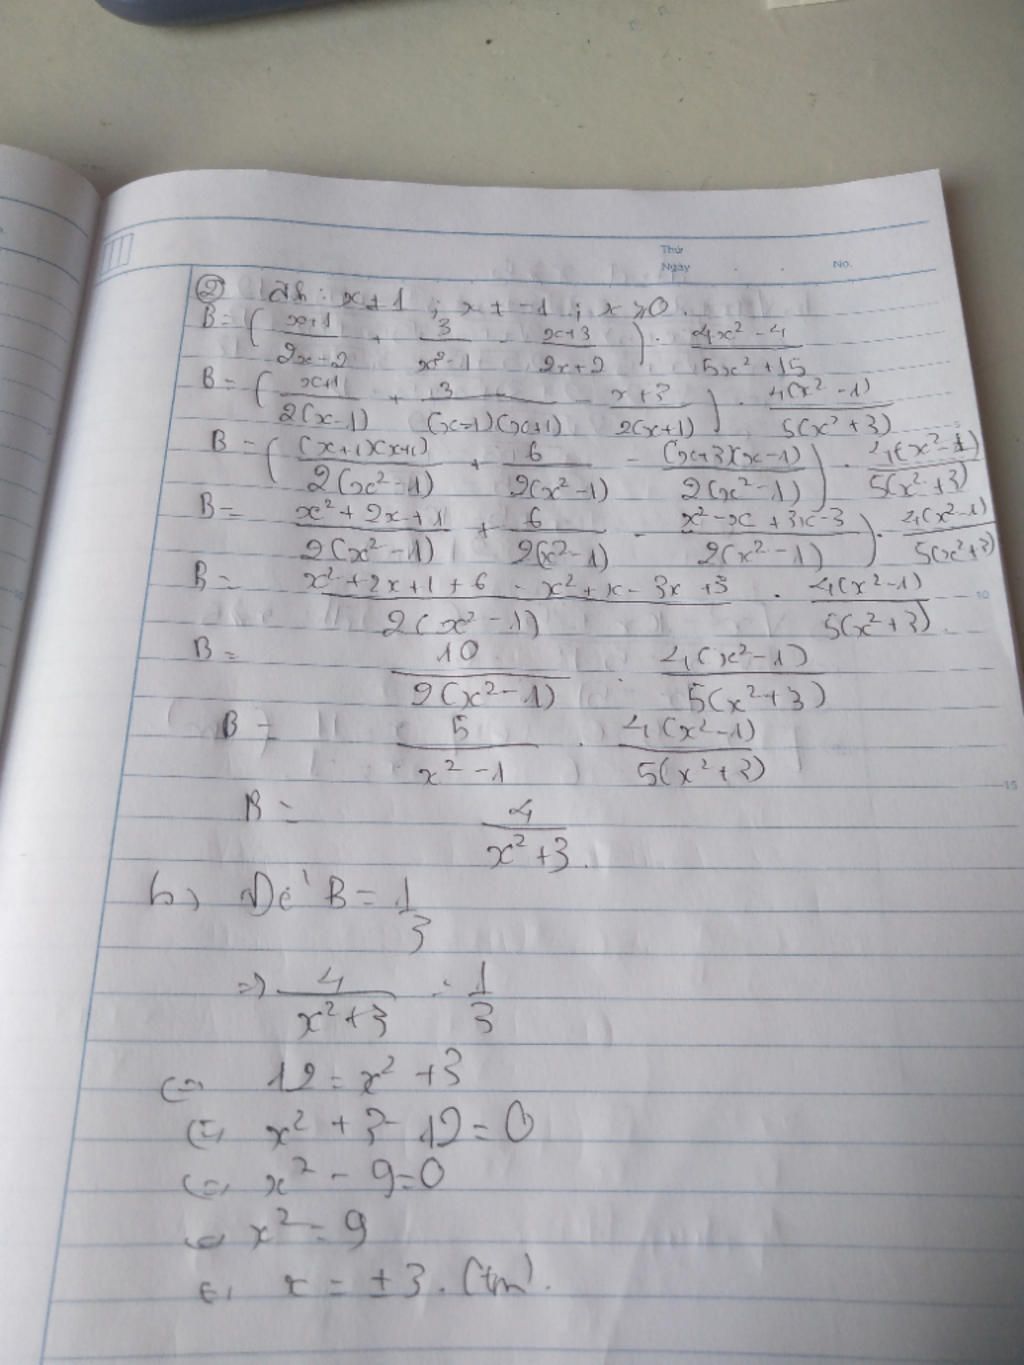 Thứ
Ngày . . No.
② đk : x ≠ 1 ; x ≠ -1 ; x ≥ 0.
B = ( (x+1)/(2x-2) + 3/(x²-1) - (x+3)/(2x+2) ) . (4x²-4)/(5x²+15)
B = ( (x+1)/(2(x-1)) + 3/((x-1)(x+1)) - (x+3)/(2(x+1)) ) . (4(x²-1))/(5(x²+3))
B = ( ((x+1)(x+1))/(2(x²-1)) + 6/(2(x²-1)) - ((x+3)(x-1))/(2(x²-1)) ) . (4(x²-1))/(5(x²+3))
B = (x²+2x+1)/(2(x²-1)) + 6/(2(x²-1)) - (x²-x+3x-3)/(2(x²-1)) ) . (4(x²-1))/(5(x²+3))
B = (x²+2x+1+6-x²+x-3x+3)/(2(x²-1)) . (4(x²-1))/(5(x²+3)).
10
B = 10/(2(x²-1)) . (4(x²-1))/(5(x²+3))
B = 5/(x²-1) . (4(x²-1))/(5(x²+3))
15
B = 4/(x²+3).
b, Để B = 1/3
=> 4/(x²+3) = 1/3
<=> 12 = x² + 3
<=> x² + 3 - 12 = 0
<=> x² - 9 = 0
<=> x² = 9
<=> x = ±3. (tm).